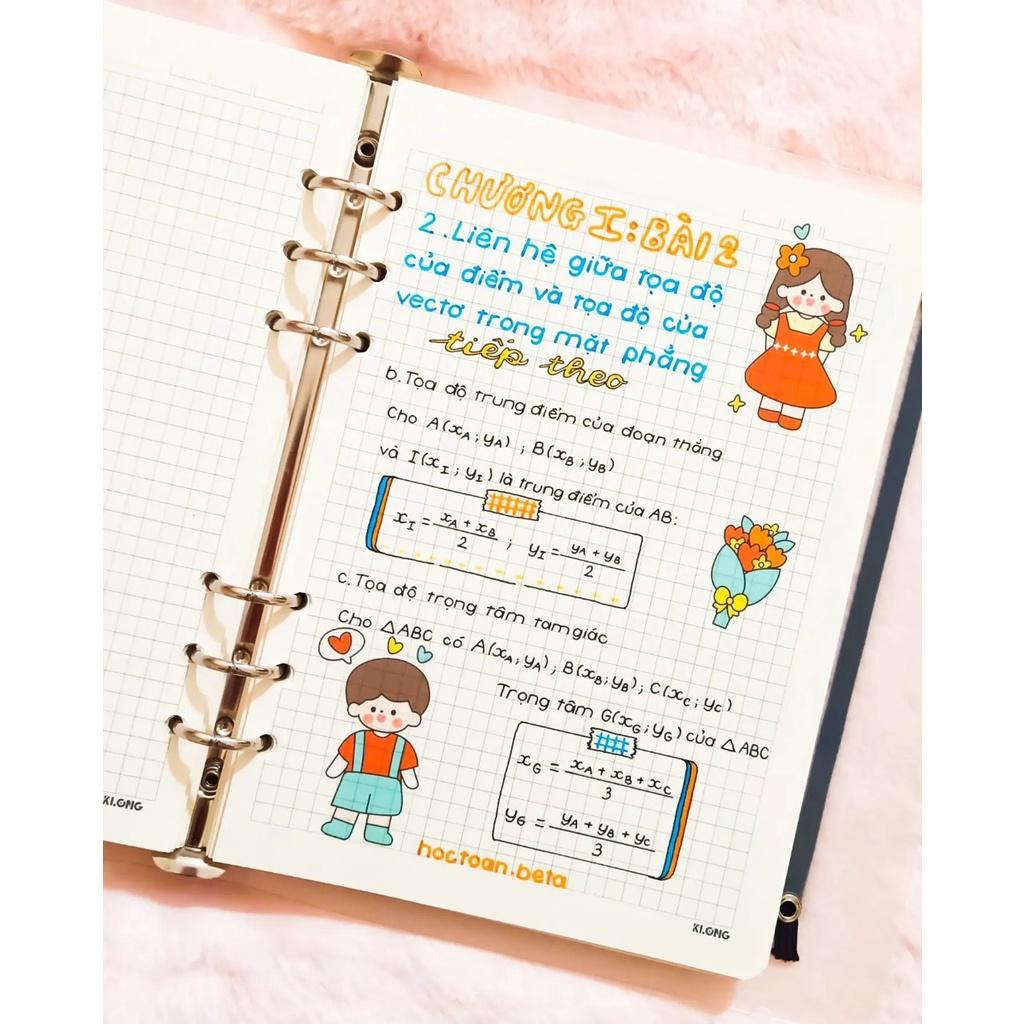 CHƯƠNG I: BÀI 2
2. Liên hệ giữa tọa độ
của điểm và tọa độ của
vectơ trong mặt phẳng
tiếp theo
b. Tọa độ trung điểm của đoạn thẳng
Cho A(x_A; y_A); B(x_B; y_B)
và I(x_I; y_I) là trung điểm của AB:
x_I = (x_A + x_B)/2 ; y_I = (y_A + y_B)/2
c. Tọa độ trọng tâm tam giác
Cho △ABC có A(x_A; y_A); B(x_B; y_B); C(x_C; y_C)
Trọng tâm G(x_G; y_G) của △ABC
x_G = (x_A + x_B + x_C)/3
y_G = (y_A + y_B + y_C)/3
hoctoan.beta
KI.ONG
KI.ONG